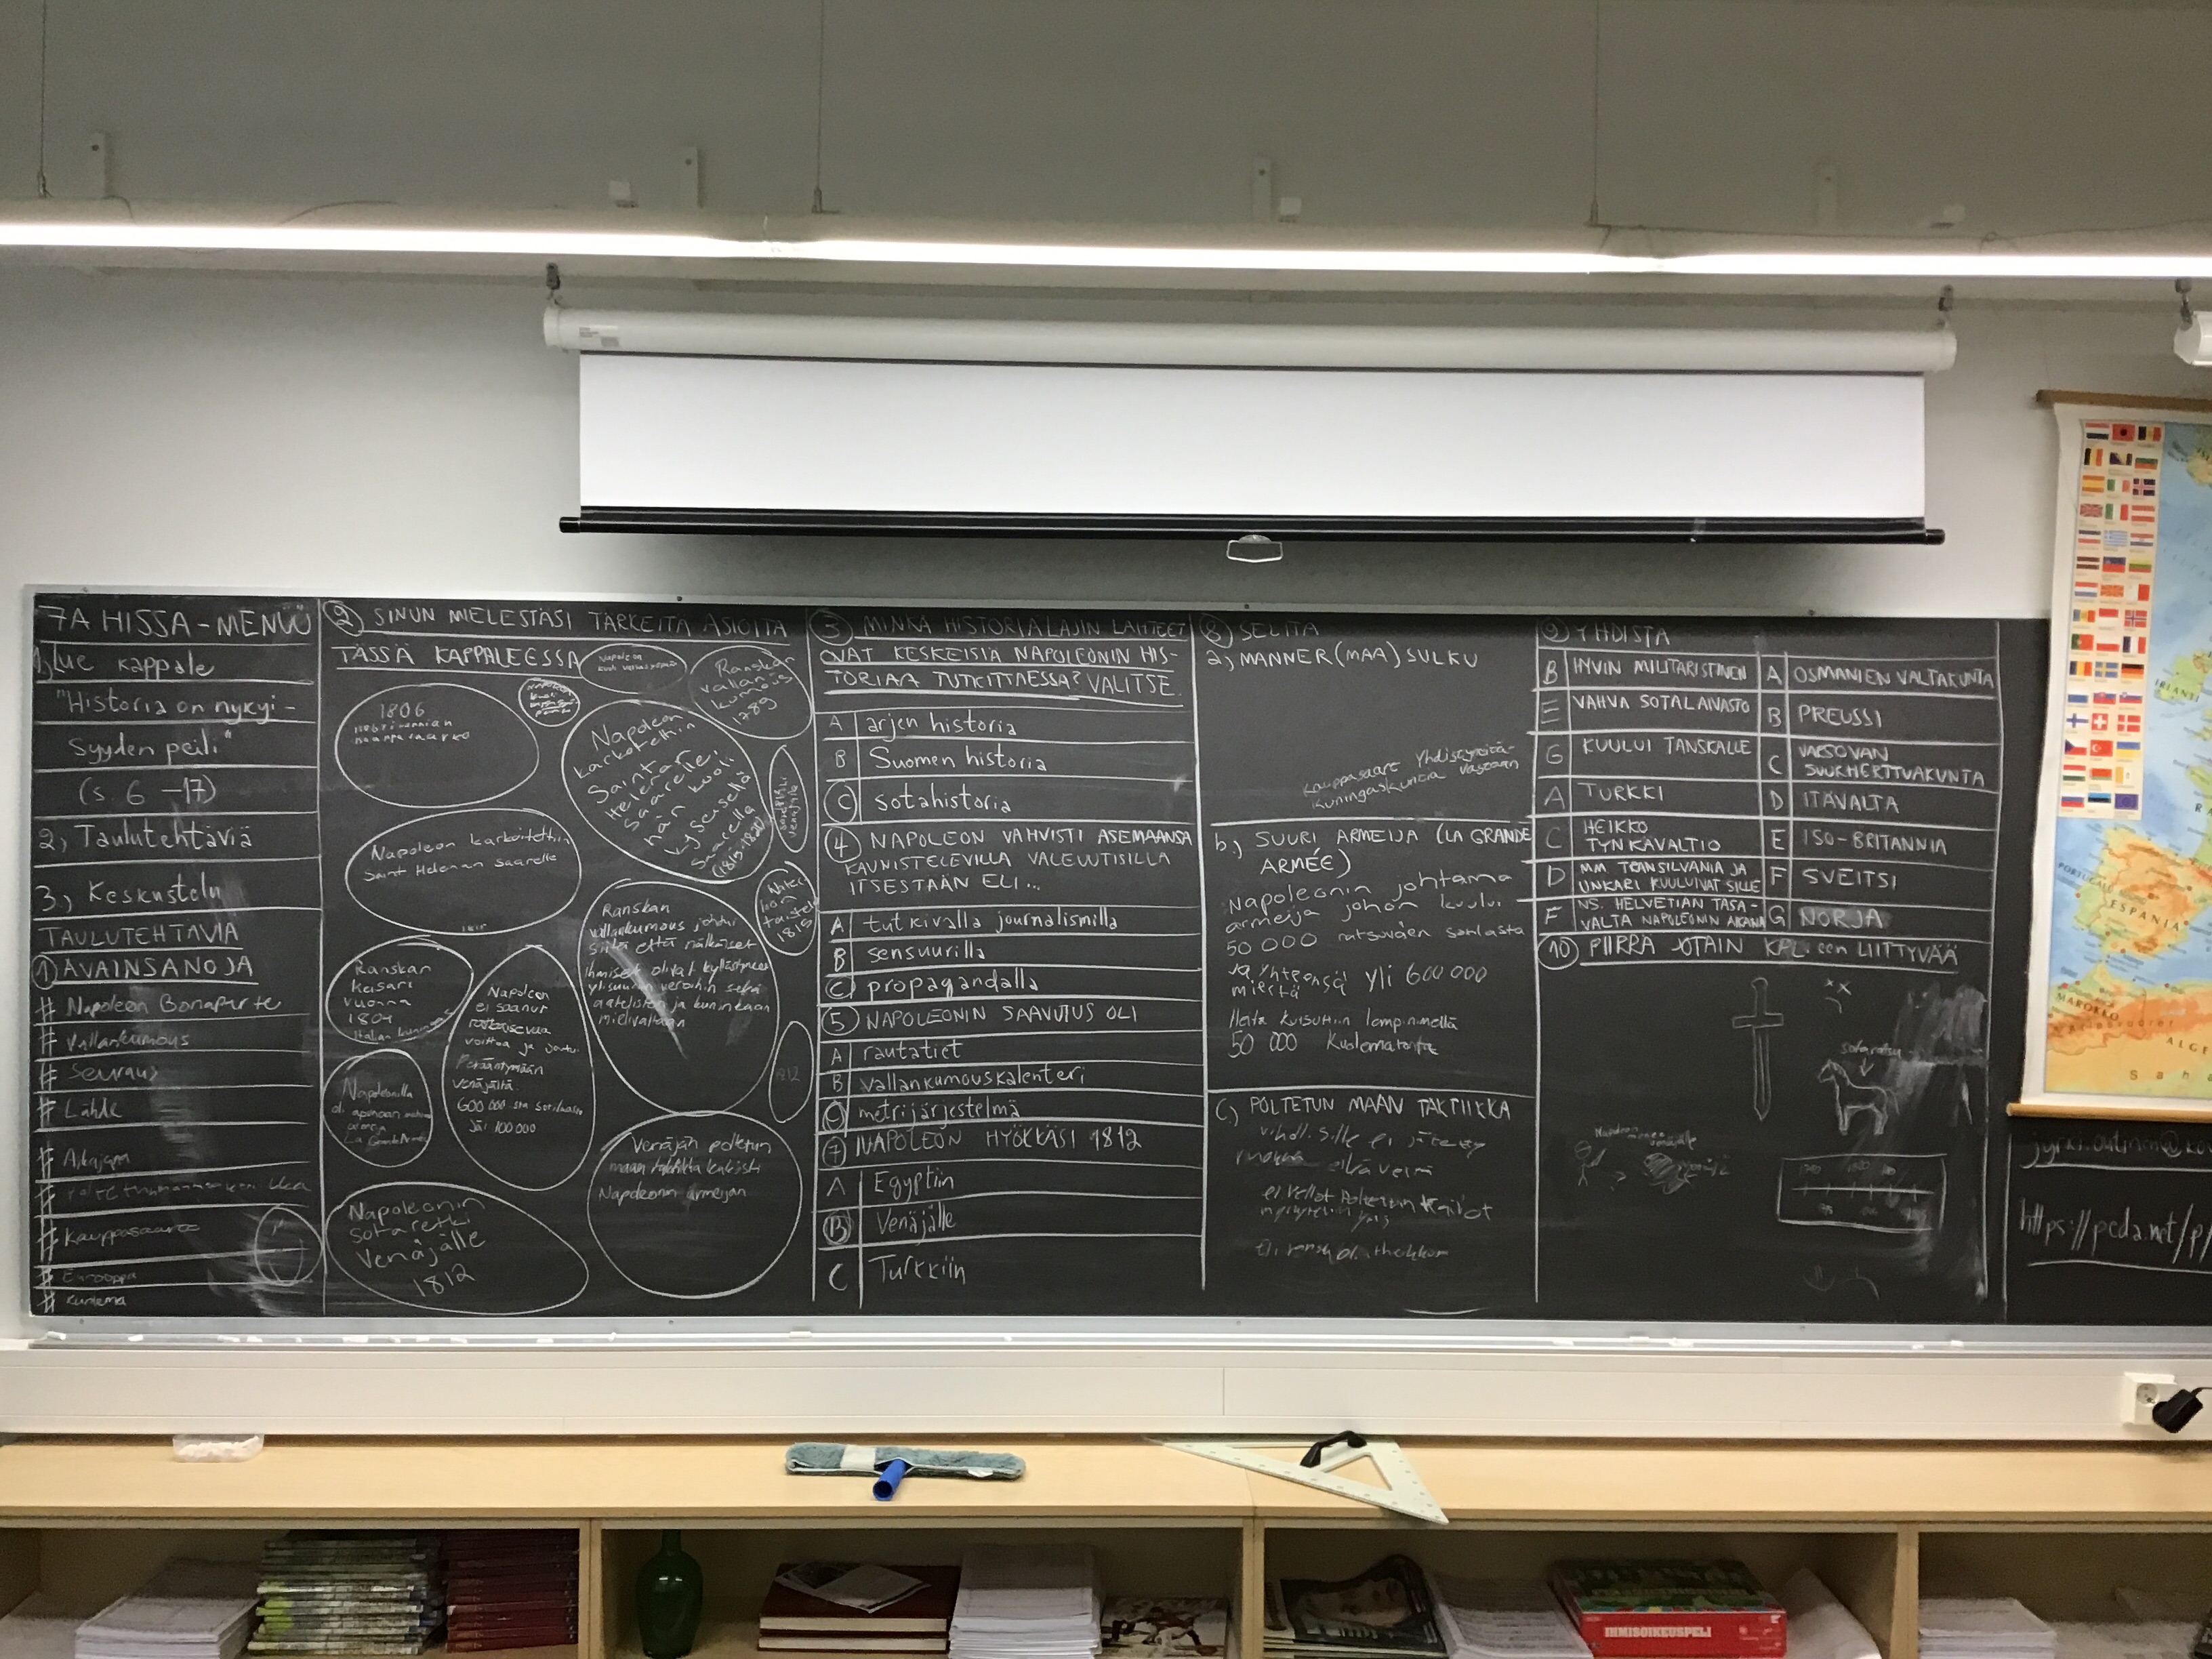 7A HISSA-MENÜ
1.) Lue kappale
"Historia on nykyi-
syyden peili"
(s. 6 – 17)
2.) Taulutehtäviä
3.) Keskustelu
TAULUTEHTÄVIÄ
1 AVAINSANOJA
# Napoleon Bonaparte
# Vallankumous
# Seuraus
# Lähde
# Aikajana
# Kauppasaarto
# Eurooppa
# Kunnia
2 SINUN MIELESTÄSI TÄRKEITÄ ASIOITA
TÄSSÄ KAPPALEESSA
Napoleon
Ranskan
vallan-
kumous
1789
1806
Napoleon
karkotettiin
Saint
Helenan
saarelle,
hän kuoli
kyseisellä
saarella
(1815-1821)
Napoleon karkoitettiin
Saint Helenan saarelle
Water-
loon
taistelu
1815
Ranskan
vallankumous johtui
siitä että nälkäiset
ihmiset olivat kyllästyneet
ylisuuriin veroihin sekä
aatelisten ja kuninkaan
mielivaltaan
Ranskan
keisari
vuonna
1804
Italian kuningas
Napoleon
ei saanut
ratkaisevaa
voittoa ja joutui
Perääntymään
Venäjältä.
600 000 :sta sotilaasta
Jäi 100 000
1812
Napoleonilla
oli apunaan mahtava
armeija
La Grande Armée
Venäjän poltetun
maan taktiikka kukisti
Napoleonin armeijan
Napoleonin
sotaretki
Venäjälle
1812
3 MINKÄ HISTORIALAJIN LÄHTEET
OVAT KESKEISIÄ NAPOLEONIN HIS-
TORIAA TUTKITTAESSA? VALITSE.
A arjen historia
B Suomen historia
C sotahistoria
4 NAPOLEON VAHVISTI ASEMAANSA
KAUNISTELEVILLA VALEUUTISILLA
ITSESTÄÄN ELI...
A tutkivalla journalismilla
B sensuurilla
C propagandalla
5 NAPOLEONIN SAAVUTUS OLI
A rautatiet
B vallankumouskalenteri
C metrijärjestelmä
7 NAPOLEON HYÖKKÄSI 1812
A Egyptiin
B Venäjälle
C Turkkiin
8 SELITÄ
a) MANNER(MAA)SULKU
Kauppasaarto Yhdistynyttä-
kuningaskuntaa vastaan
b.) SUURI ARMEIJA (LA GRANDE
ARMÉE)
Napoleonin johtama
armeija johon kuului
50 000 ratsuväen sotilasta
ja yhteensä yli 600 000
miestä
Heitä kutsuttiin lempinimellä
50 000 Kuolematonta
C.) POLTETUN MAAN TAKTIIKKA
vihollisille ei jätetty
ruokaa eikä vettä
9 YHDISTÄ
B HYVIN MILITARISTINEN A OSMANIEN VALTAKUNTA
E VAHVA SOTALAIVASTO B PREUSSI
G KUULUI TANSKALLE C VARSOVAN
SUURHERTTUAKUNTA
A TURKKI D ITÄVALTA
C HEIKKO
TYNKÄVALTIO E ISO-BRITANNIA
D MM TRANSILVANIA JA
UNKARI KUULUIVAT SILLE F SVEITSI
F NS. HELVETIAN TASA-
VALTA NAPOLEONIN AIKANA G NORJA
10 PIIRRÄ JOTAIN KPL:een LIITTYVÄÄ
sotaratsu
https://peda.net/p/
ESPANJA
MAROKKO
IRLANTI
PORTUGALI
ALGE
Saha
IHMISOIKEUSPELI